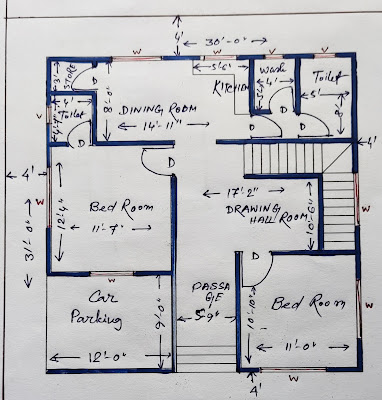 4'
30'-0"
W
W
V
V
3'
STORE
D
8'-0"
5'-6"
KITCHEN
Wash
4'
Toilet
5'
8'
V
4'
Toilet
D
DINING ROOM
14'-11"
D
D
D
4'
4'
W
12'-4"
Bed Room
11'-7"
D
17'-2"
DRAWING
HALL ROOM
10'-6"
W
31'-0"
W
Car
Parking
9'-0"
12'-0"
PASSA
GE
5'-9"
D
Bed Room
10'-10"
11'-0"
W
W
4'